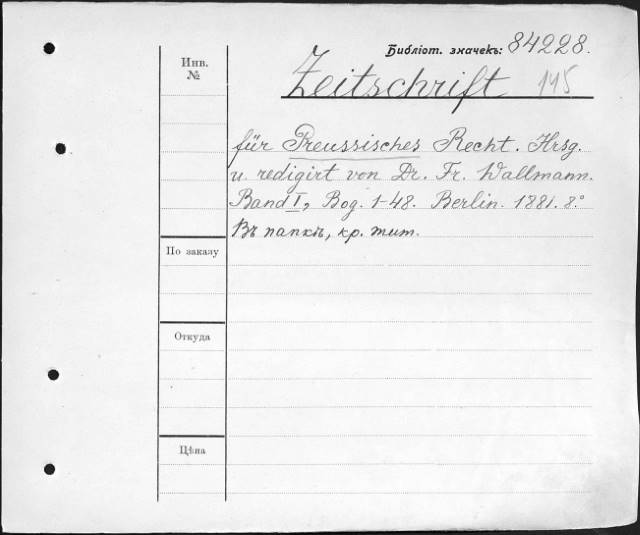 Библіот. значекъ: 84228.
Инв. №
Zeitschrift 145
für Preussisches Recht. Hrsg.
u. redigirt von Dr. Fr. Wallmann.
Band I, Bog. 1-48. Berlin. 1881. 8.°
Въ папкѣ, кр. тит.
По заказу
Откуда
Цѣна